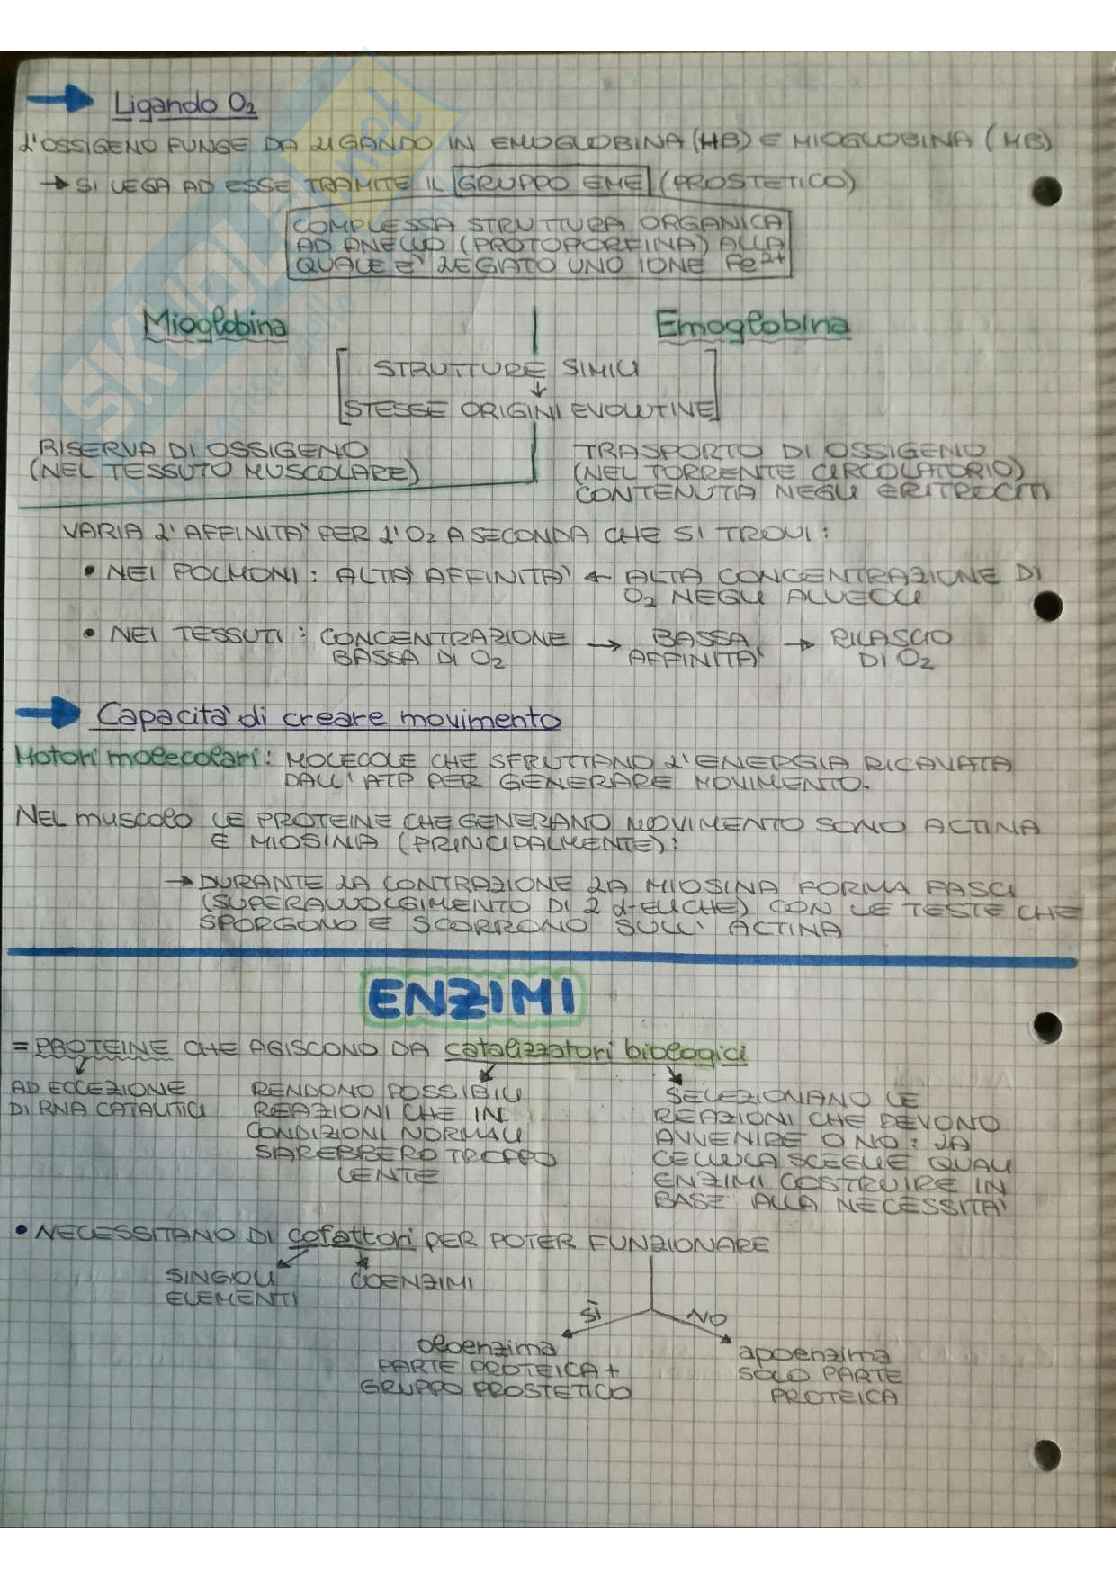 Ligando O₂
L'OSSIGENO FUNGE DA LIGANDO IN EMOGLOBINA (HB) E MIOGLOBINA (MB)
→ SI LEGA AD ESSE TRAMITE IL GRUPPO EME (PROSTETICO)
COMPLESSA STRUTTURA ORGANICA
AD ANELLO (PROTOPORFINA) ALLA
QUALE E' LEGATO UNO IONE Fe²⁺
Mioglobina
Emoglobina
STRUTTURE SIMILI
↓
STESSE ORIGINI EVOLUTIVE
RISERVA DI OSSIGENO
(NEL TESSUTO MUSCOLARE)
TRASPORTO DI OSSIGENO
(NEL TORRENTE CIRCOLATORIO)
CONTENUTA NEGLI ERITROCITI
VARIA L'AFFINITA' PER L'O₂ A SECONDA CHE SI TROVI:
• NEI POLMONI: ALTA AFFINITA' ← ALTA CONCENTRAZIONE DI
O₂ NEGLI ALVEOLI
• NEI TESSUTI: CONCENTRAZIONE → BASSA → RILASCIO
BASSA DI O₂ AFFINITA' DI O₂
Capacità di creare movimento
Motori molecolari: MOLECOLE CHE SFRUTTANO L'ENERGIA RICAVATA
DALL'ATP PER GENERARE MOVIMENTO.
NEL muscolo LE PROTEINE CHE GENERANO MOVIMENTO SONO ACTINA
E MIOSINA (PRINCIPALMENTE):
→ DURANTE LA CONTRAZIONE LA MIOSINA FORMA FASCI
(SUPERAVVOLGIMENTO DI 2 α-ELICHE) CON LE TESTE CHE
SPORGONO E SCORRONO SULL'ACTINA
ENZIMI
= PROTEINE CHE AGISCONO DA catalizzatori biologici
AD ECCEZIONE
DI RNA CATALITICI
RENDONO POSSIBILI
REAZIONI CHE IN
CONDIZIONI NORMALI
SAREBBERO TROPPO
LENTE
SELEZIONANO LE
REAZIONI CHE DEVONO
AVVENIRE O NO: LA
CELLULA SCEGLIE QUALI
ENZIMI COSTRUIRE IN
BASE ALLA NECESSITA'
• NECESSITANO DI cofattori PER POTER FUNZIONARE
SINGOLI
ELEMENTI
COENZIMI
SÌ
NO
oloenzima
PARTE PROTEICA +
GRUPPO PROSTETICO
apoenzima
SOLO PARTE
PROTEICA
SKUOLA.net